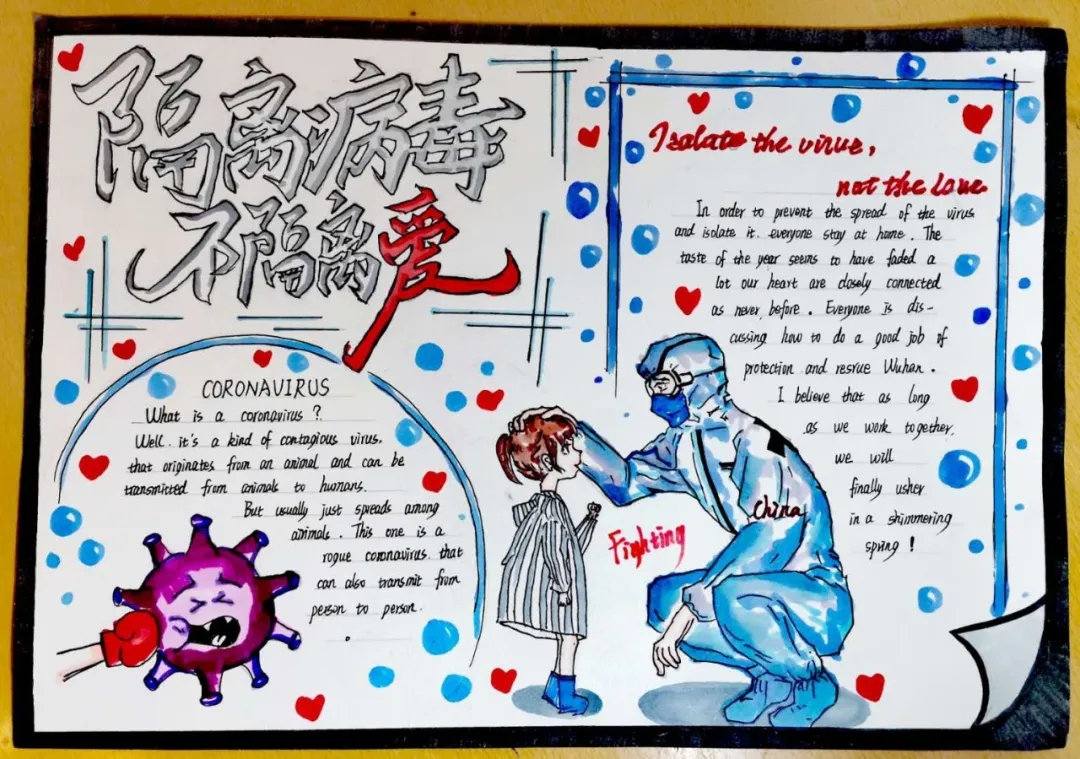 隔离病毒
不隔离爱
Isolate the virus,
not the love
In order to prevent the spread of the virus
and isolate it. everyone stay at home. The
taste of the year seems to have faded a
lot our heart are closely connected
as never before. Everyone is dis-
cussing how to do a good job of
protection and resrue Wuhan.
I believe that as long
as we work together,
we will
finally usher
in a shimmering
spring!
CORONAVIRUS
What is a coronavirus?
Well. it's a kind of contagious virus.
that originates from an animal and can be
transmitted from animals to humans.
But usually just spreads among
animals. This one is a
rogue coronavirus. that
can also transmit from
person to person.
Fighting
China